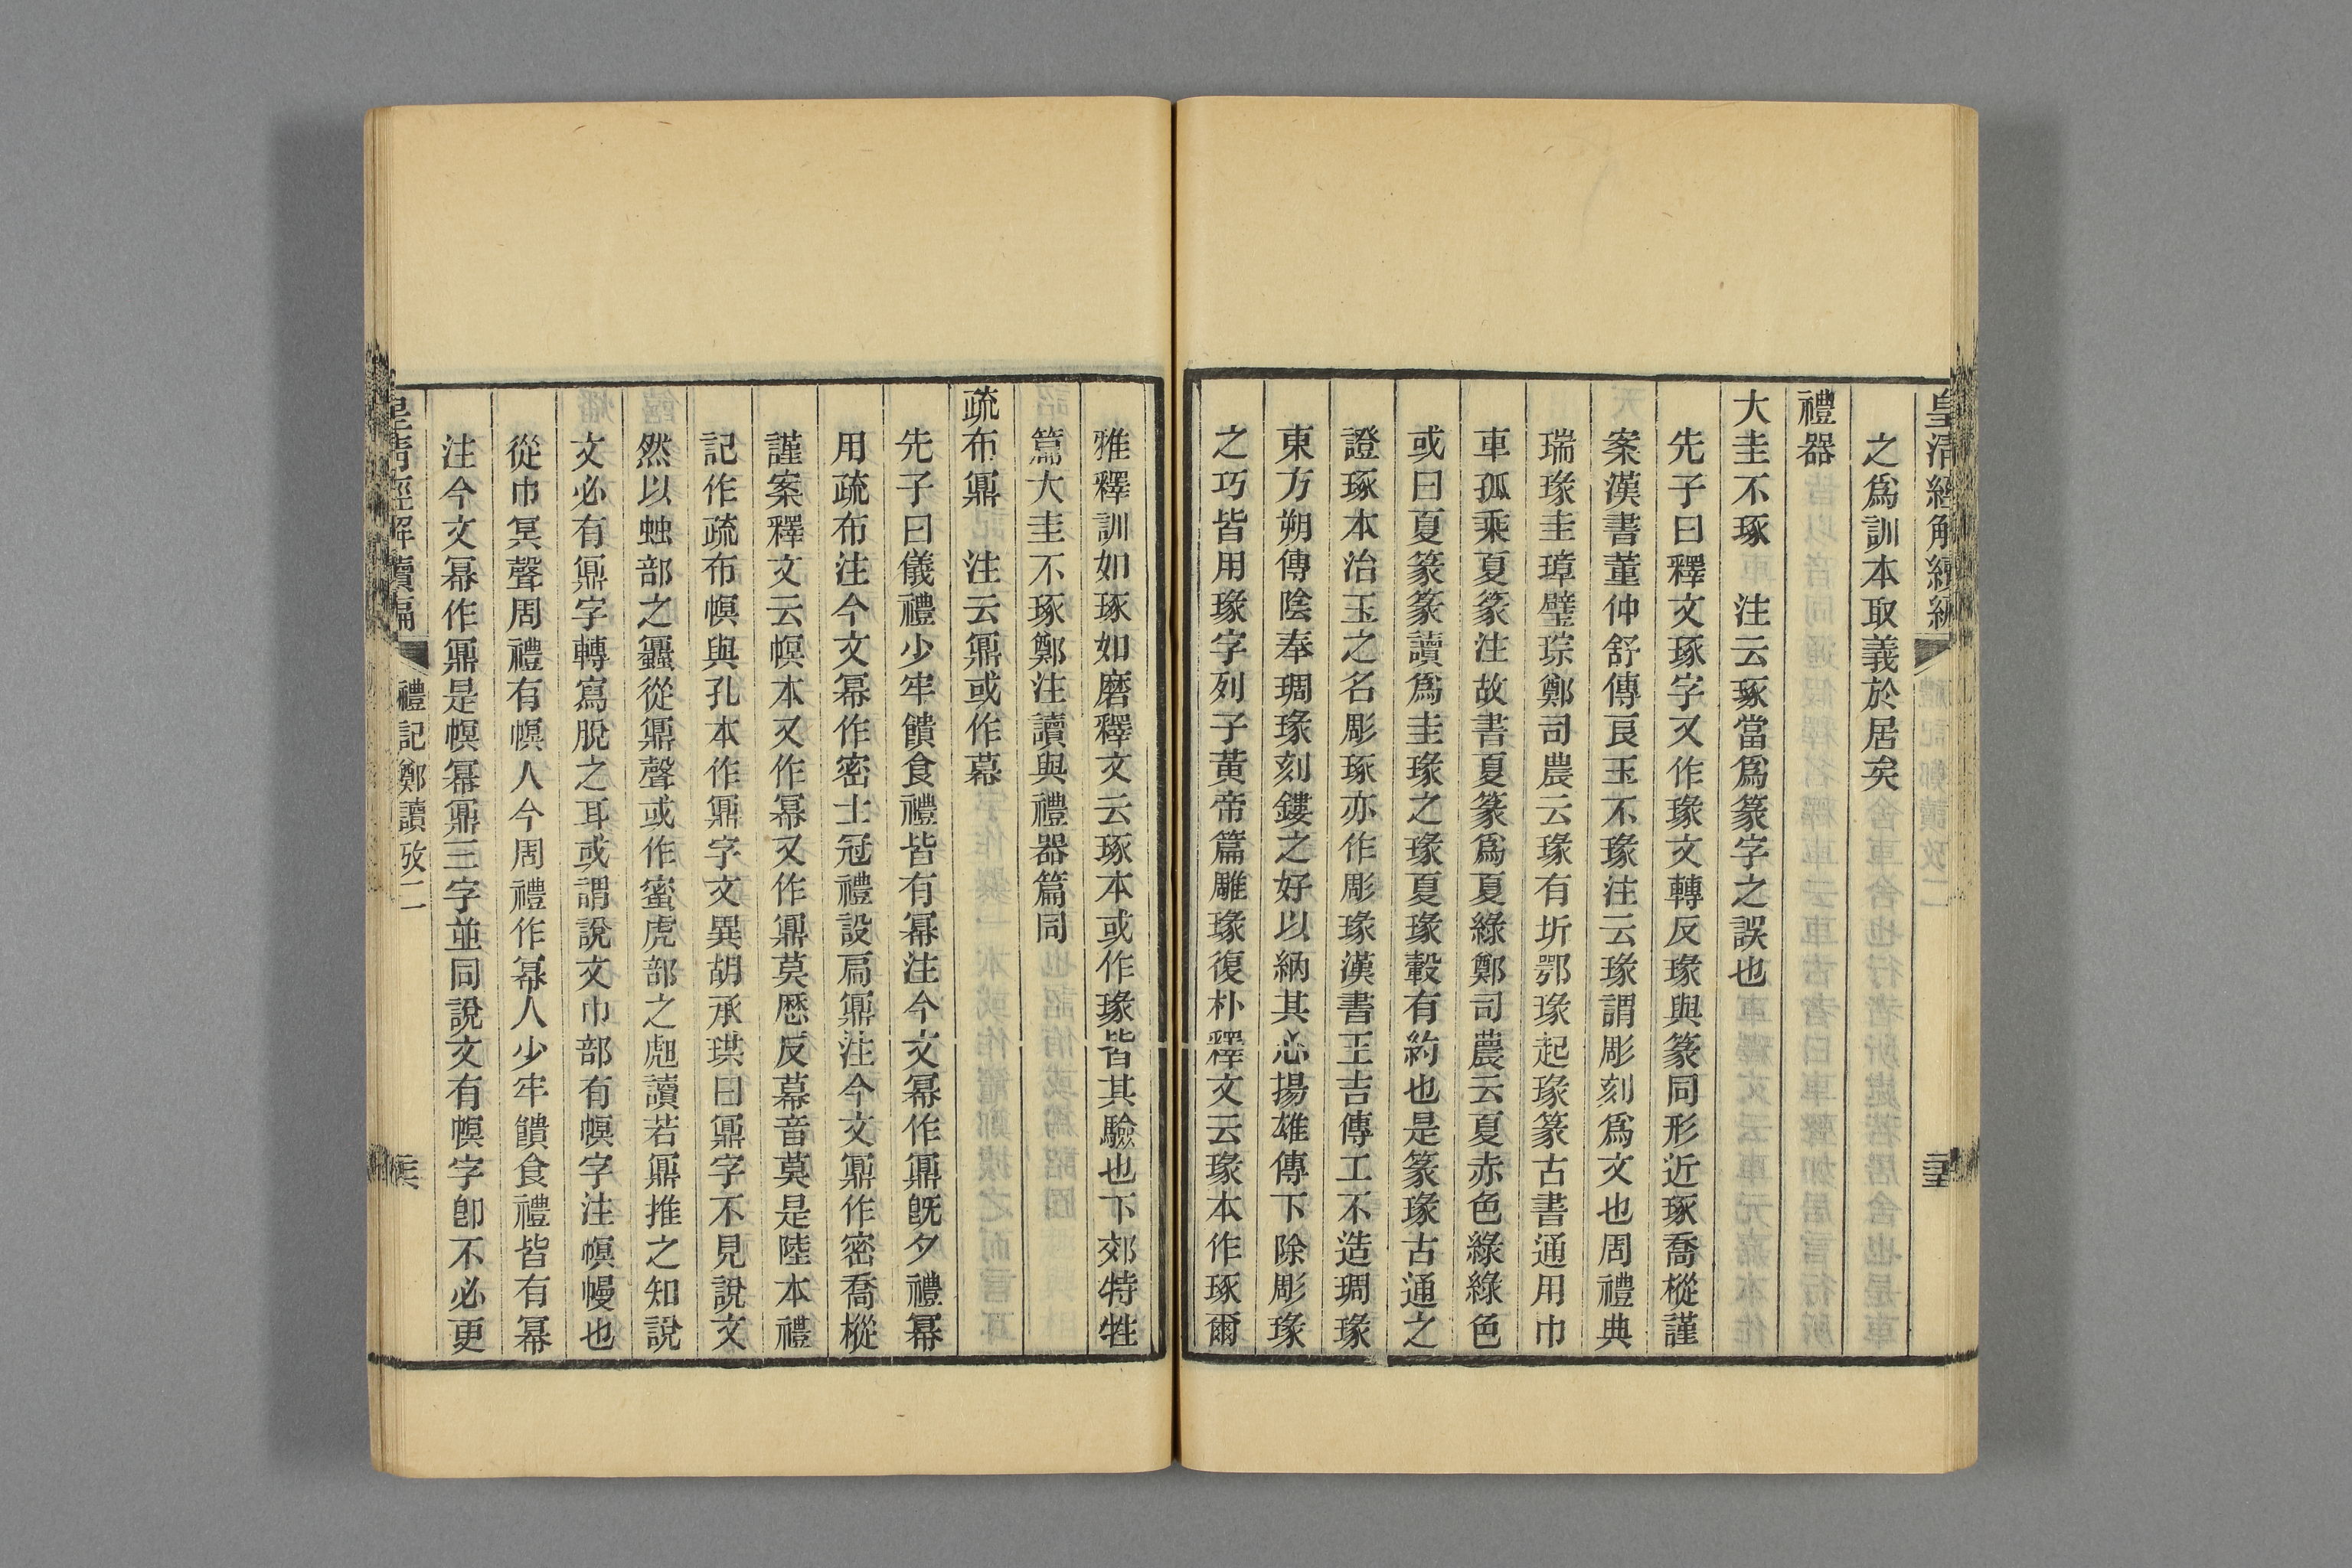 皇清經解續編
之爲訓本取義於居矣
禮器
大圭不琢　注云琢當爲篆字之誤也
先子曰釋文琢字又作瑑文轉反瑑與篆同形近琢喬樅謹
案漢書董仲舒傳良玉不瑑注云瑑謂彫刻爲文也周禮典
瑞瑑圭璋璧琮鄭司農云瑑有圻鄂瑑起瑑篆古書通用巾
車孤乘夏篆注故書夏篆爲夏綠鄭司農云夏赤色綠綠色
或曰夏篆篆讀爲圭瑑之瑑夏瑑轂有約也是篆瑑古通之
證琢本治玉之名彫琢亦作彫瑑漢書王吉傳工不造琱瑑
東方朔傳陰奉琱瑑刻鏤之好以納其心揚雄傳下除彫瑑
之巧皆用瑑字列子黃帝篇雕瑑復朴釋文云瑑本作琢爾
雅釋訓如琢如磨釋文云琢本或作瑑皆其驗也下郊特牲
篇大圭不琢鄭注讀與禮器篇同
疏布鼏　注云鼏或作幕
先子曰儀禮少牢饋食禮皆有冪注今文冪作鼏旣夕禮冪
用疏布注今文冪作密士冠禮設扃鼏注今文鼏作密喬樅
謹案釋文云幎本又作冪又作鼏莫歷反幕音莫是陸本禮
記作疏布幎與孔本作鼏字文異胡承珙曰鼏字不見說文
然以䖵部之䘉從鼏聲或作蜜虎部之虪讀若鼏推之知說
文必有鼏字轉寫脫之耳或謂說文巾部有幎字注幎幔也
從巾冥聲周禮有幎人今周禮作冪人少牢饋食禮皆有冪
注今文冪作鼏是幎冪鼏三字並同說文有幎字卽不必更
皇清經解續編
禮記鄭讀攷二